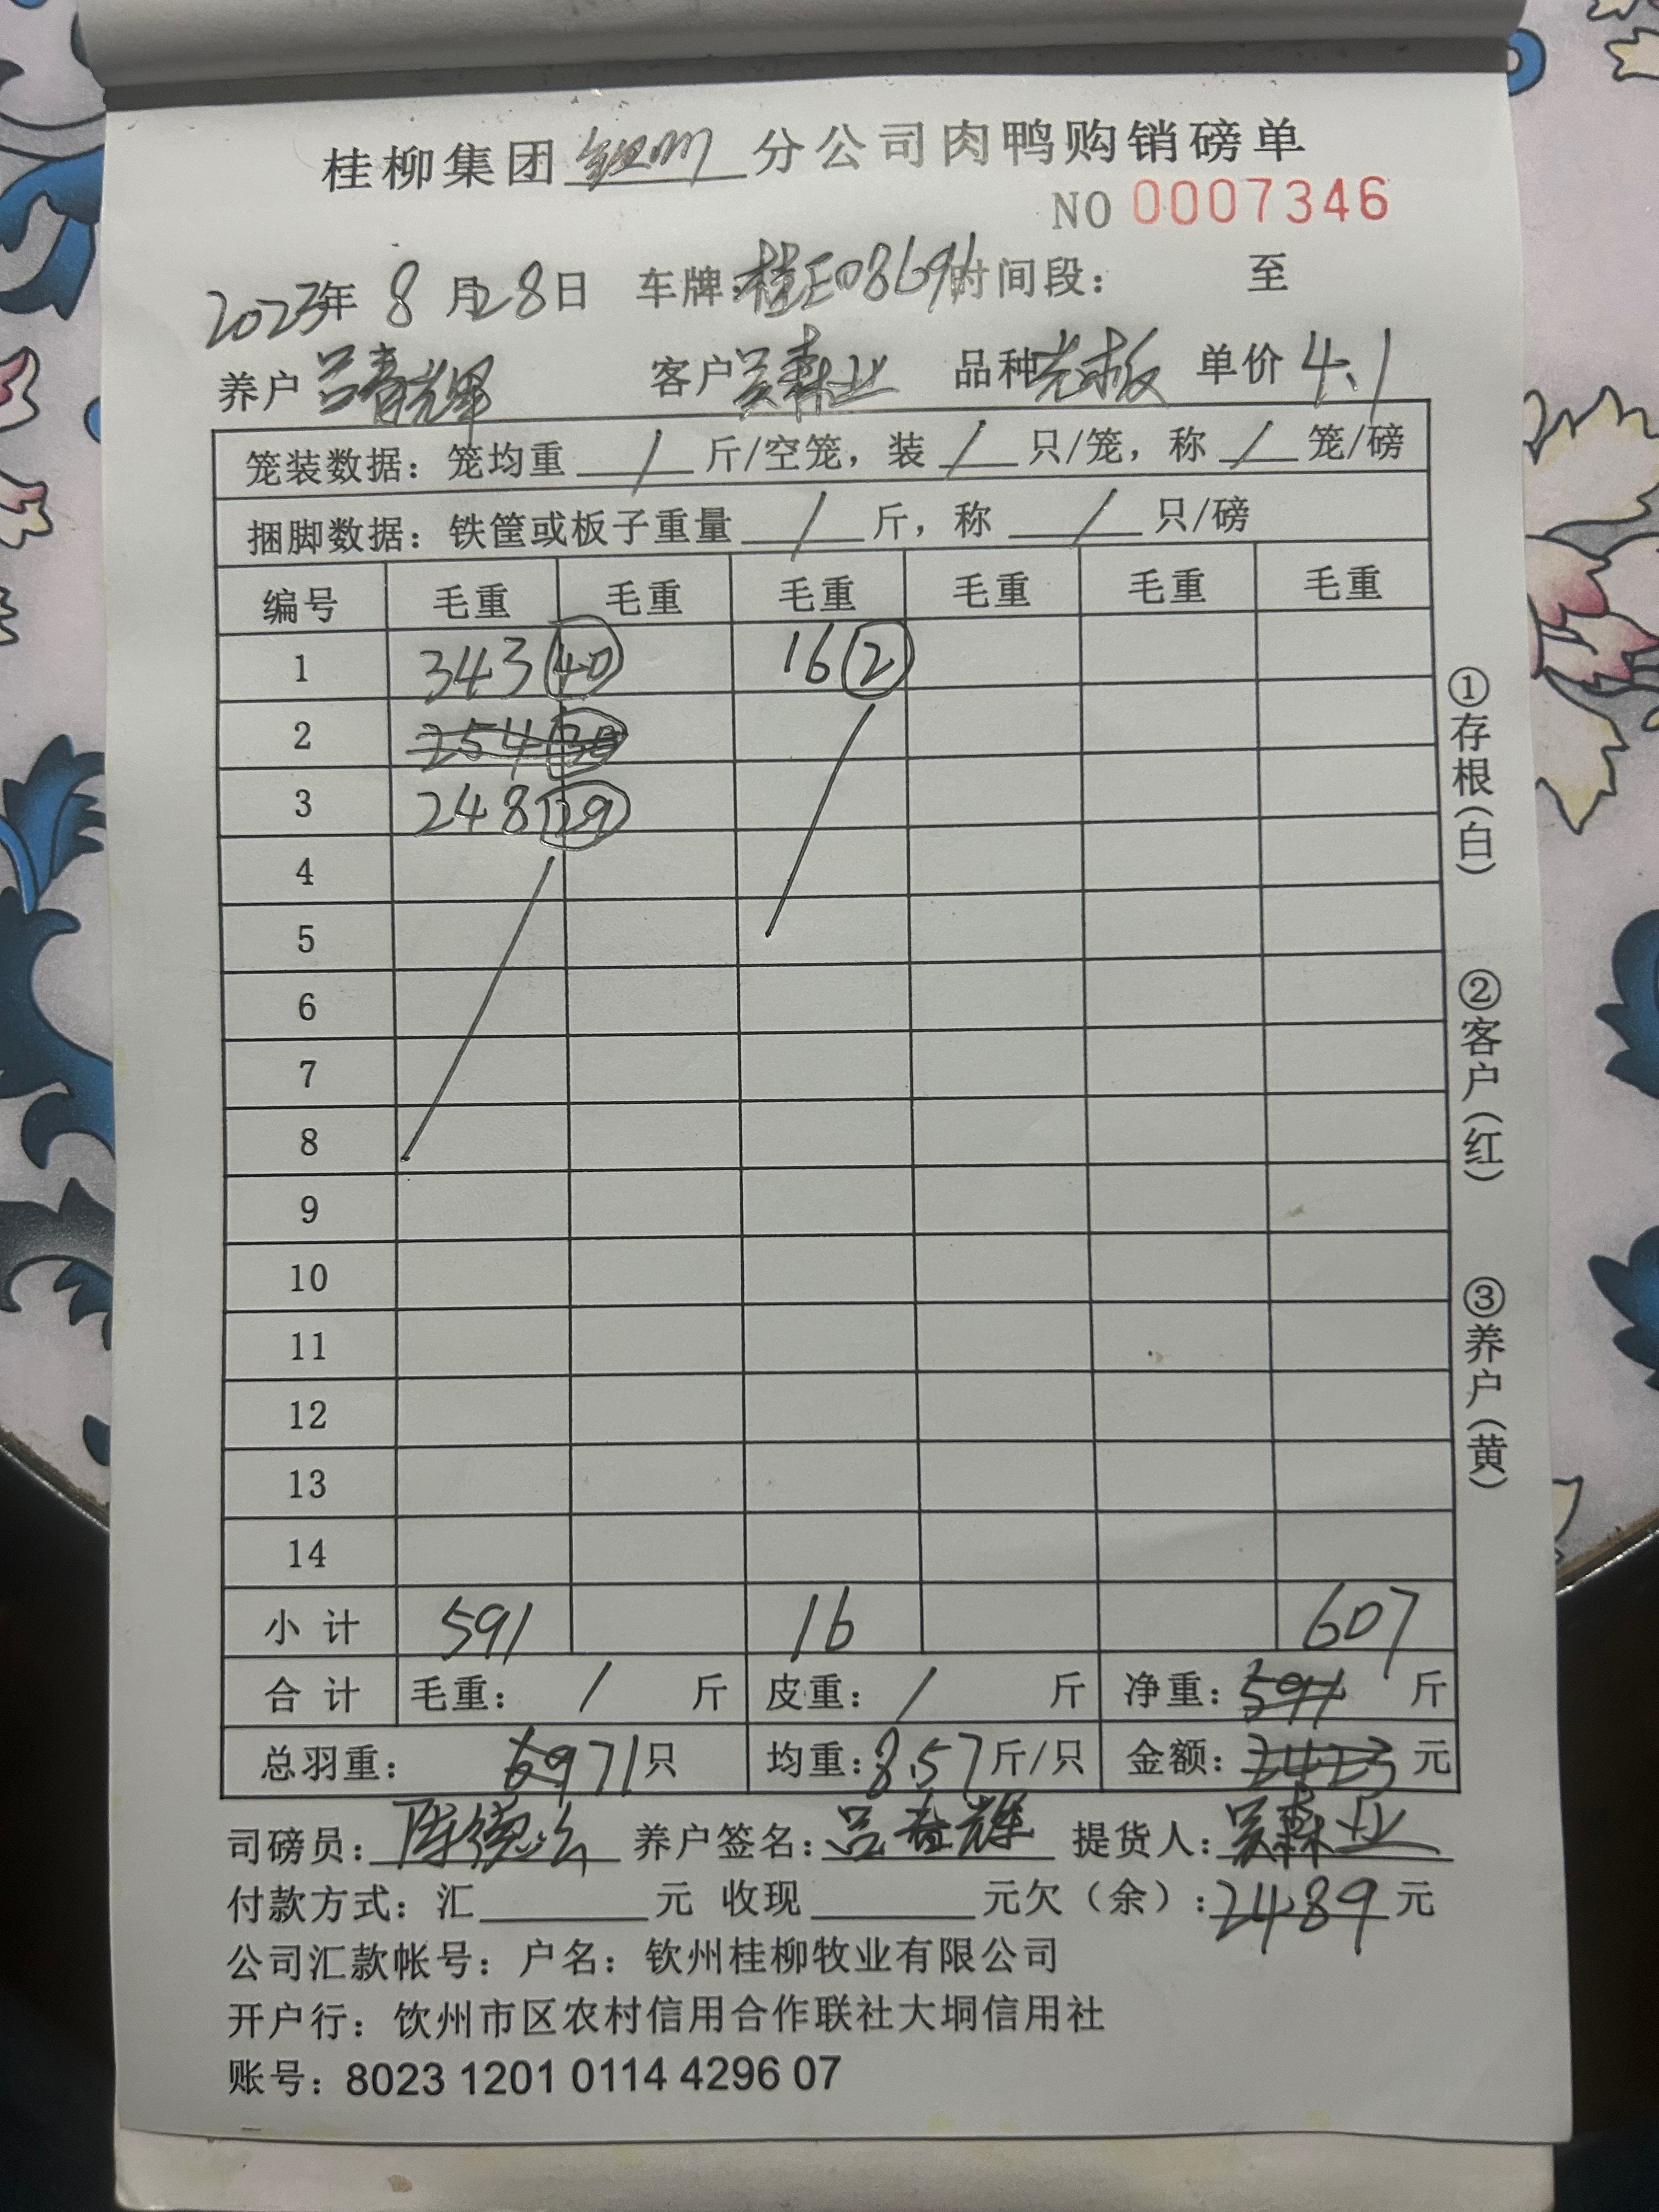 桂柳集团 钦州 分公司肉鸭购销磅单
NO 0007346
2023年 8月28日 车牌:桂E08691 时间段: 至
养户 吕春辉 客户 吴森业 品种 光板 单价 4.1
笼装数据: 笼均重 / 斤/空笼, 装 / 只/笼, 称 / 笼/磅
捆脚数据: 铁筐或板子重量 / 斤, 称 / 只/磅
编号 毛重 毛重 毛重 毛重 毛重 毛重
1 343 40 16 2
2 254 30
3 248 29
4
5
6
7
8
9
10
11
12
13
14
小计 591 16 607
合计 毛重: / 斤 皮重: / 斤 净重: 591 斤
总羽重: 69 71只 均重: 8.57斤/只 金额: 2423 元
司磅员: 陈德 养户签名: 吕春辉 提货人: 吴森业
付款方式: 汇 元 收现 元欠(余): 2489 元
公司汇款帐号: 户名: 钦州桂柳牧业有限公司
开户行: 饮州市区农村信用合作联社大垌信用社
账号: 8023 1201 0114 4296 07
①存根(白)
②客户(红)
③养户(黄)